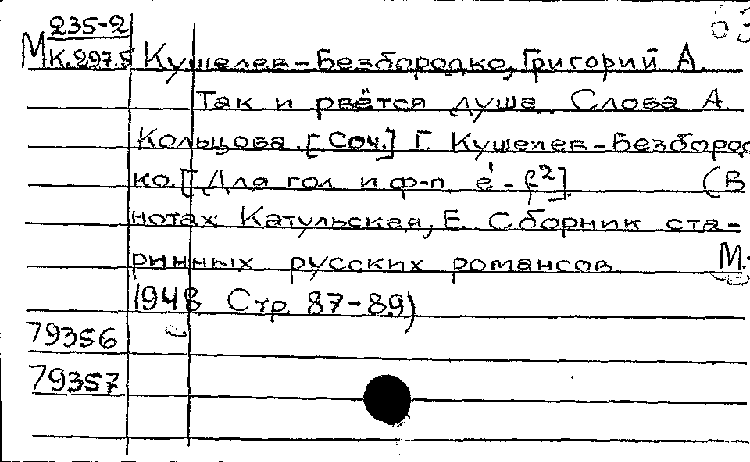 235-2
М К.297.5 Кушелев-Безбородко, Григорий А.
Так и рвётся душа. Слова А.
Кольцова. [Соч.] Г. Кушелев-Безбород-
ко. [Для гол. и ф-п. e¹-f²] (В
нотах Катульская, Е. Сборник ста-
ринных русских романсов. М.
1948 Стр. 87-89)
79356
79357